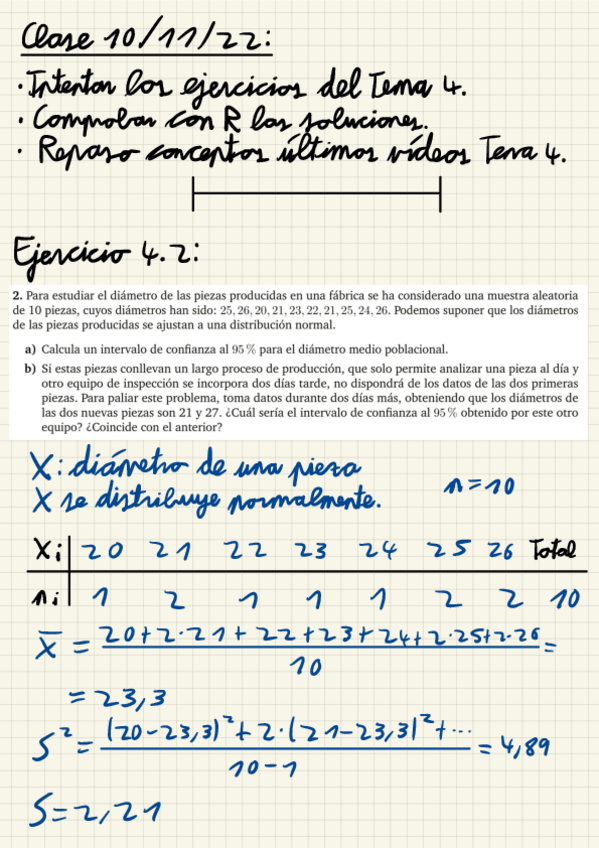 Clase 10/11/22:
· Intentar los ejercicios del Tema 4.
· Comprobar con R las soluciones.
· Repaso conceptos últimos vídeos Tema 4.
Ejercicio 4.2:
2. Para estudiar el diámetro de las piezas producidas en una fábrica se ha considerado una muestra aleatoria
de 10 piezas, cuyos diámetros han sido: 25, 26, 20, 21, 23, 22, 21, 25, 24, 26. Podemos suponer que los diámetros
de las piezas producidas se ajustan a una distribución normal.
a) Calcula un intervalo de confianza al 95 % para el diámetro medio poblacional.
b) Si estas piezas conllevan un largo proceso de producción, que solo permite analizar una pieza al día y
otro equipo de inspección se incorpora dos días tarde, no dispondrá de los datos de las dos primeras
piezas. Para paliar este problema, toma datos durante dos días más, obteniendo que los diámetros de
las dos nuevas piezas son 21 y 27. ¿Cuál sería el intervalo de confianza al 95 % obtenido por este otro
equipo? ¿Coincide con el anterior?
X: diámetro de una pieza
X se distribuye normalmente. n=10
Xi | 20 21 22 23 24 25 26 Total
ni | 1 2 1 1 1 2 2 10
X̄ = (20+2·21+22+23+24+2·25+2·26)/10 =
= 23,3
S² = ((20-23,3)²+2·(21-23,3)²+...)/(10-1) = 4,89
S=2,21